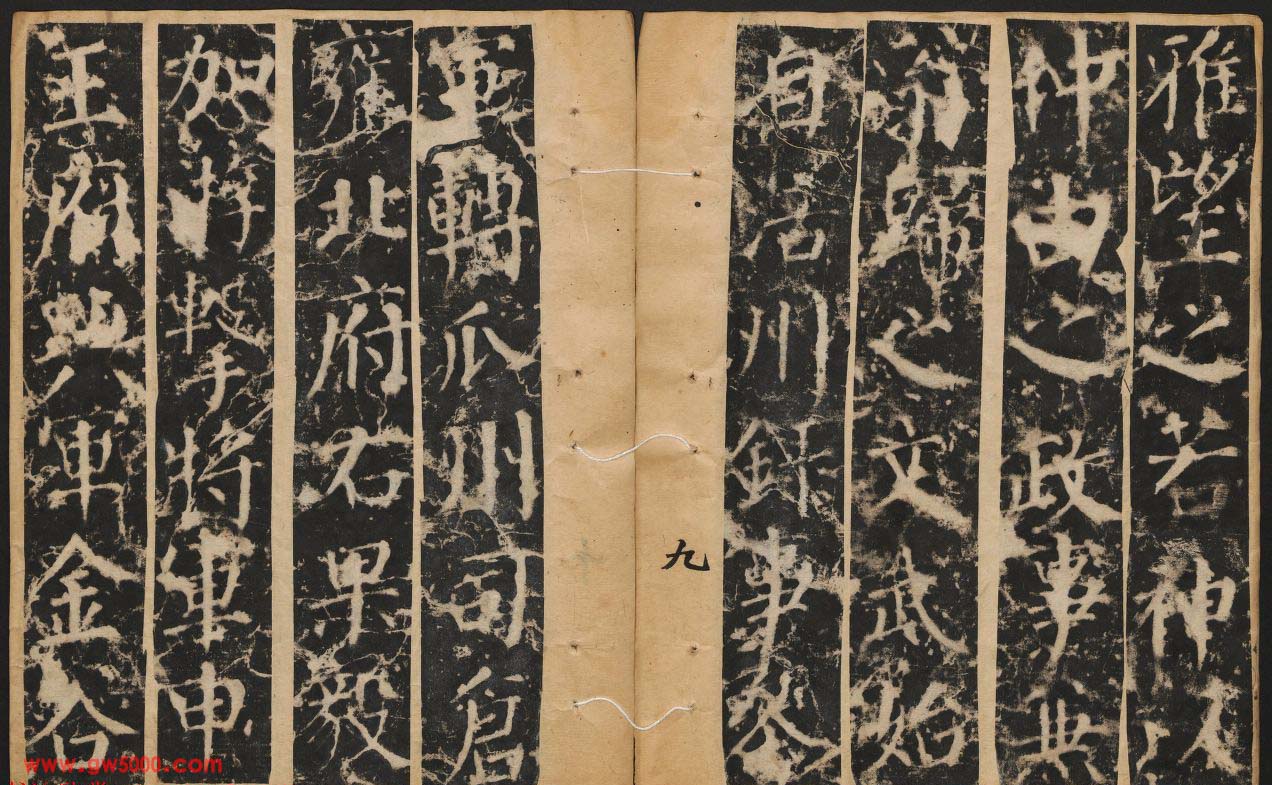 雅望之若神以
仲由之政事典
歸之文武始
自石州錄事參
軍轉瓜州司倉
北府右果毅
加游擊將軍申
王府典軍金谷
九
www.gw5000.com